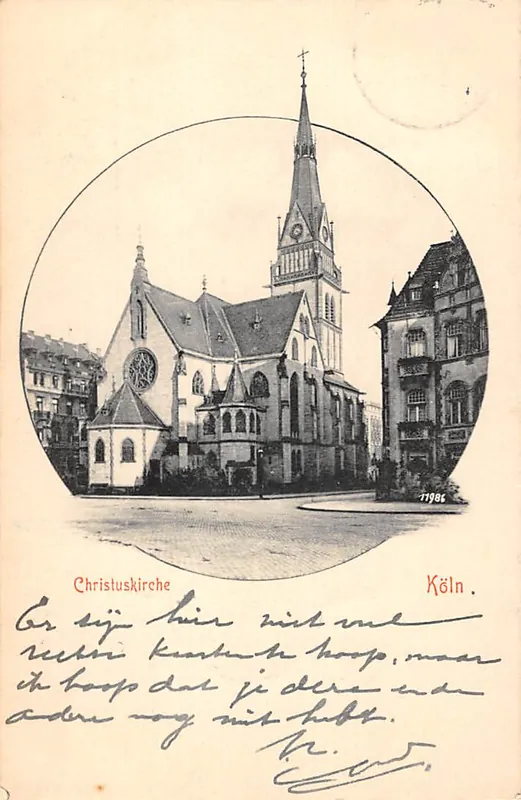 11986
Christuskirche
Köln.
Er zijn hier niet veel
kaarten te koop, maar
ik hoop dat je deze en de
andere nog niet hebt.